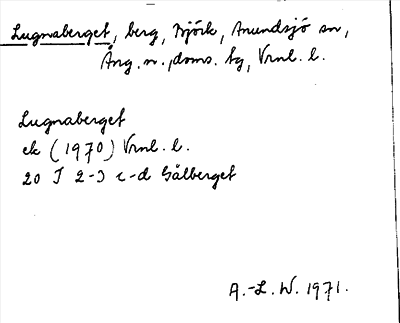 Lugnaberget, berg, Björk, Anundsjö sn,
Ång. n., doms. tg, Vrml. l.
Lugnaberget
ek (1970) Vrml. l.
20 I 2-3 c-d Gålberget
A.-L. W. 1971.